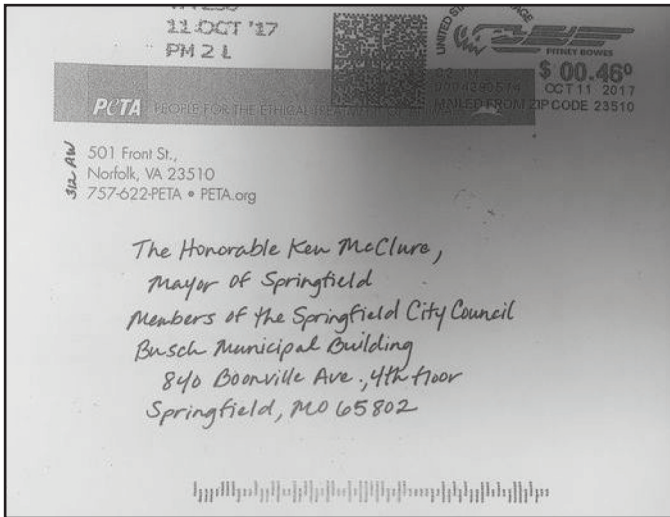 11 OCT '17
PM 2 L
UNITED
PITNEY BOWES
$ 00.46⁰
02 1M
OCT 11 2017
MAILED FROM ZIP CODE 23510
PETA PEOPLE FOR THE ETHICAL TREATMENT OF
312 AW
501 Front St.,
Norfolk, VA 23510
757-622-PETA • PETA.org
The Honorable Ken McClure,
Mayor of Springfield
Members of the Springfield City Council
Busch Municipal Building
840 Boonville Ave., 4th floor
Springfield, MO 65802